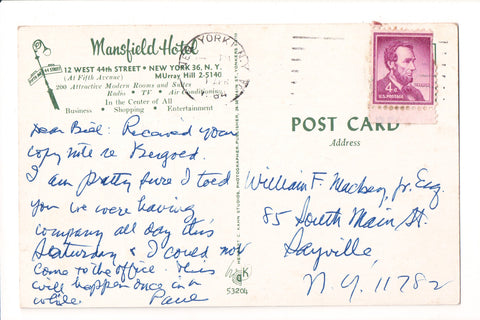 Mansfield Hotel
12 WEST 44th STREET • NEW YORK 36, N. Y.
(At Fifth Avenue) MUrray Hill 2-5140
200 Attractive Modern Rooms and Suites
Radio • TV • Air Conditioning
In the Center of All
Business • Shopping • Entertainment
44 STREET
NEW YORK, N.Y.
4¢
U.S. POSTAGE
POST CARD
Address
Dear Bill: Received your
copy note re Bergold.
I am pretty sure I told
you we were having
company all day this
Saturday & I could not
come to the office. This
will happen once in a
while. Paul
William F. Jr. Esq.
85 South Main St.
Sayville
N.Y. 11782
K
53204